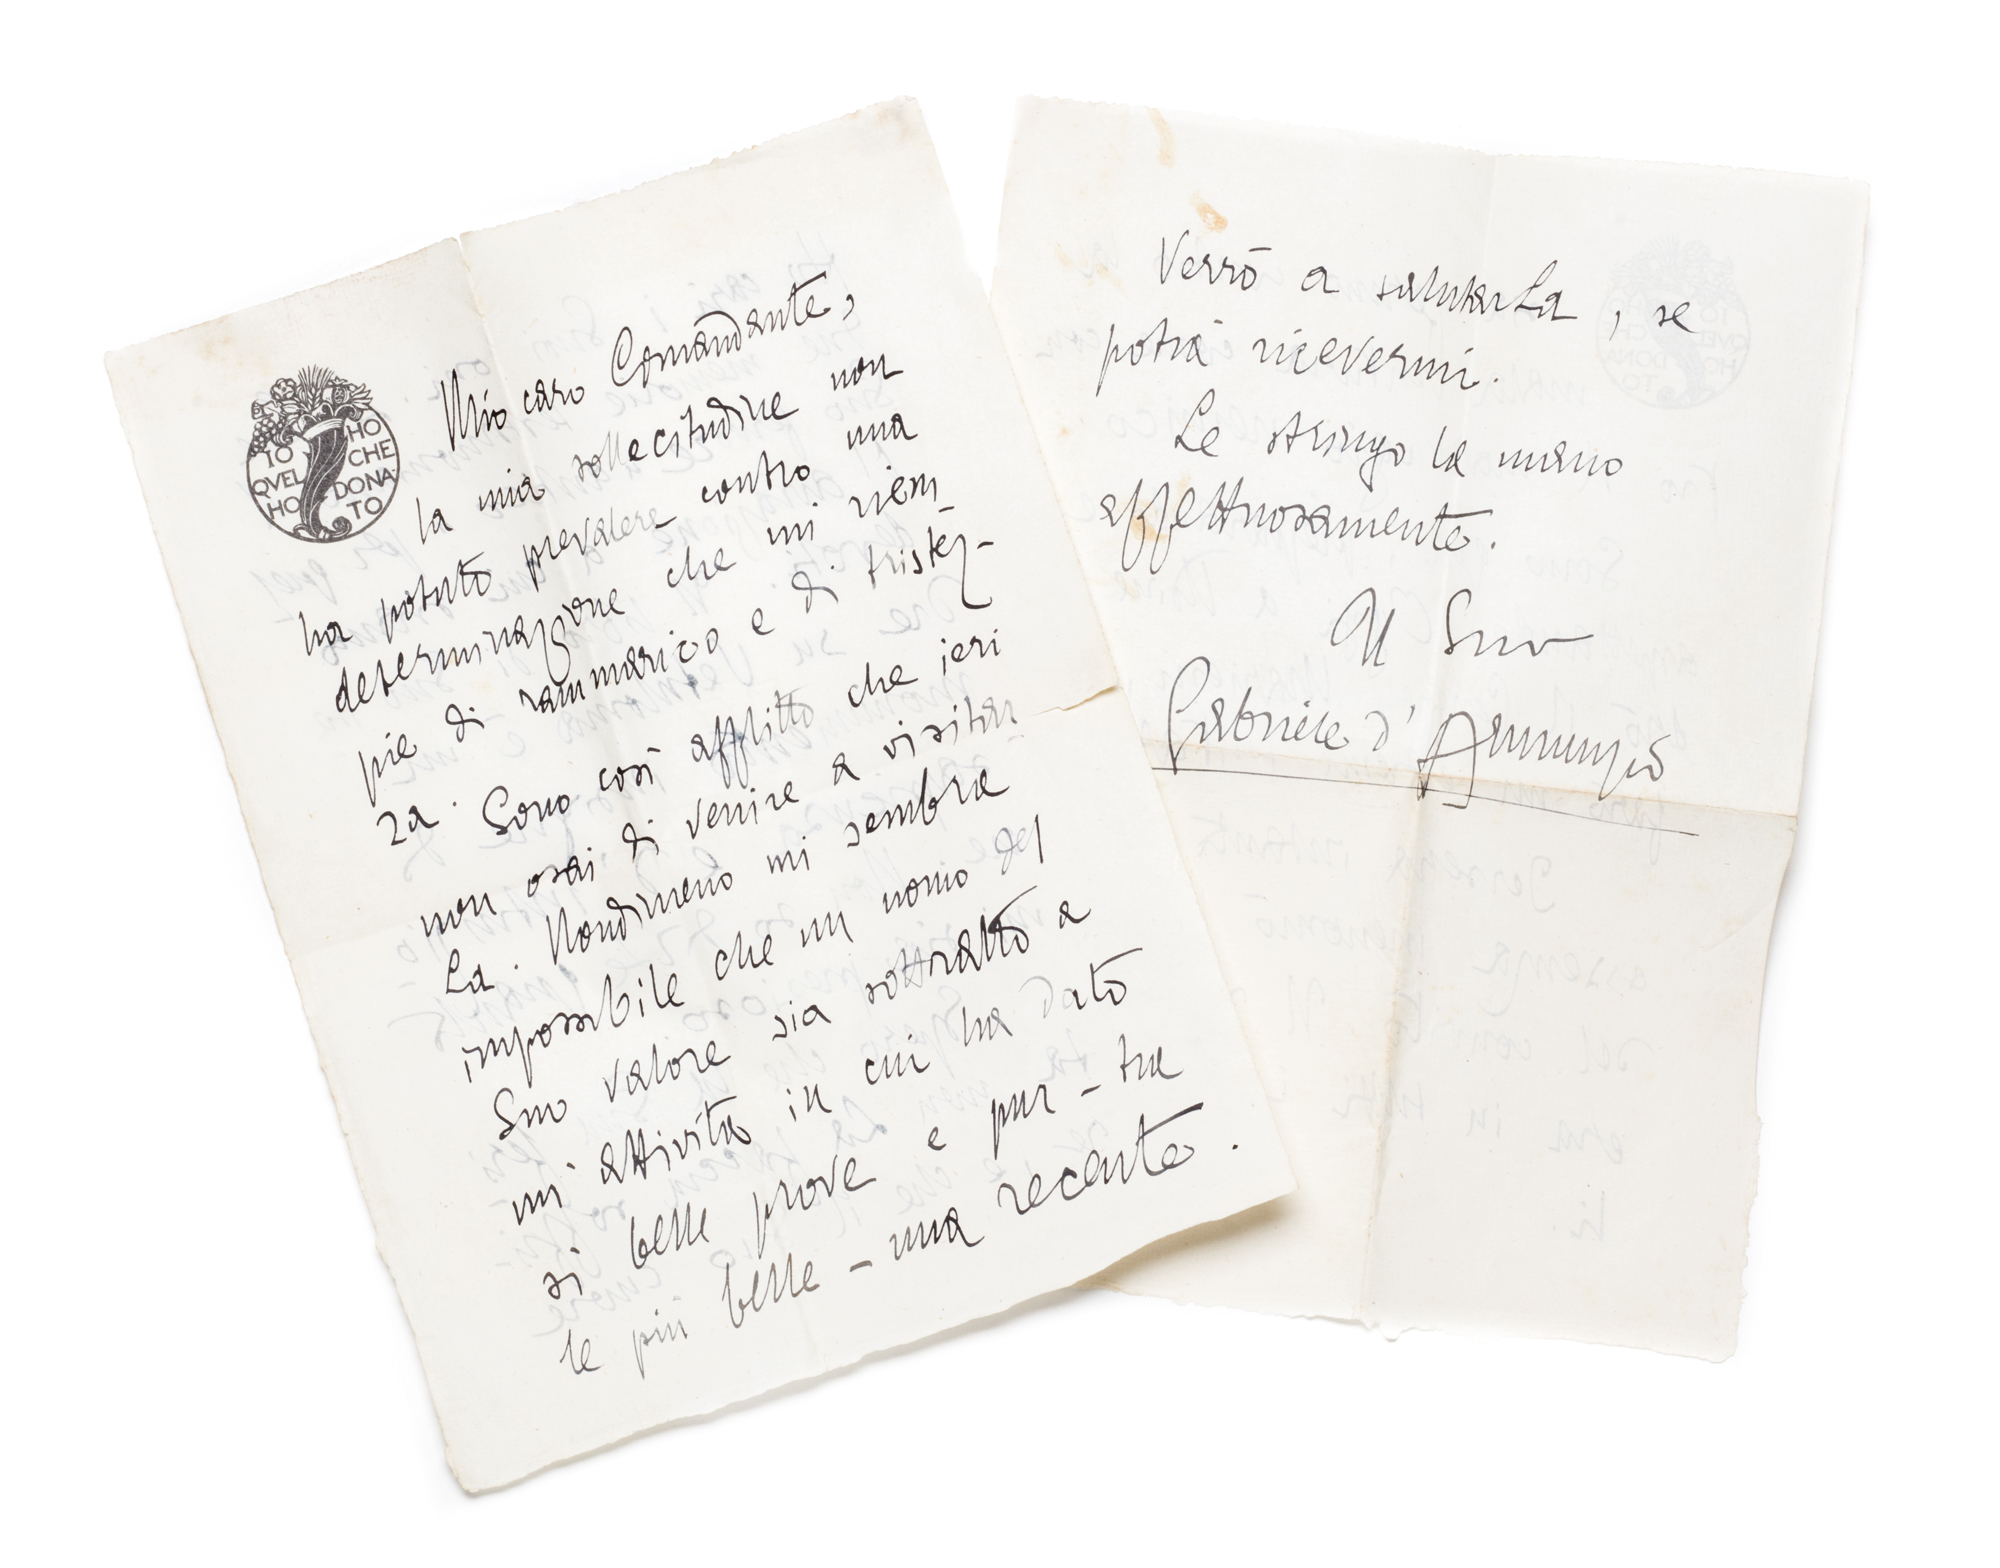 IO HO
QVEL CHE
HO DONA
TO
Mio caro Comandante,
la mia sollecitudine non
ha potuto prevalere contro una
determinazione che mi riem
pie di rammarico e di tristez-
za. Sono così afflitto che ieri
non osai di venire a visitar
La. Nondimeno mi sembra
impossibile che un uomo del
Suo valore sia sottratto a
un'attività in cui ha dato
sì belle prove e pur-tra
le più belle-una recente.
Verrò a salutarLa, se
potrà ricevermi.
Le stringo la mano
affettuosamente.
Il Suo
Gabriele d'Annunzio